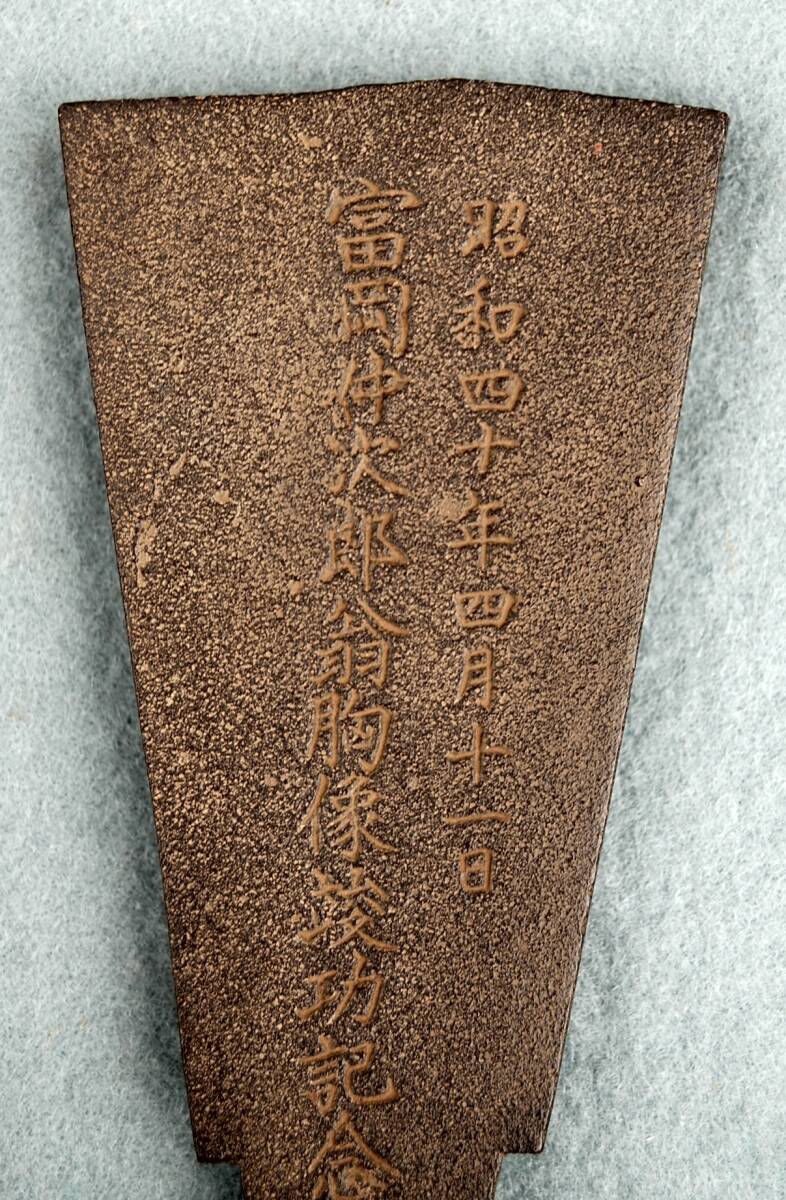 昭和四十年四月十一日
富岡仲次郎翁胸像竣功記念